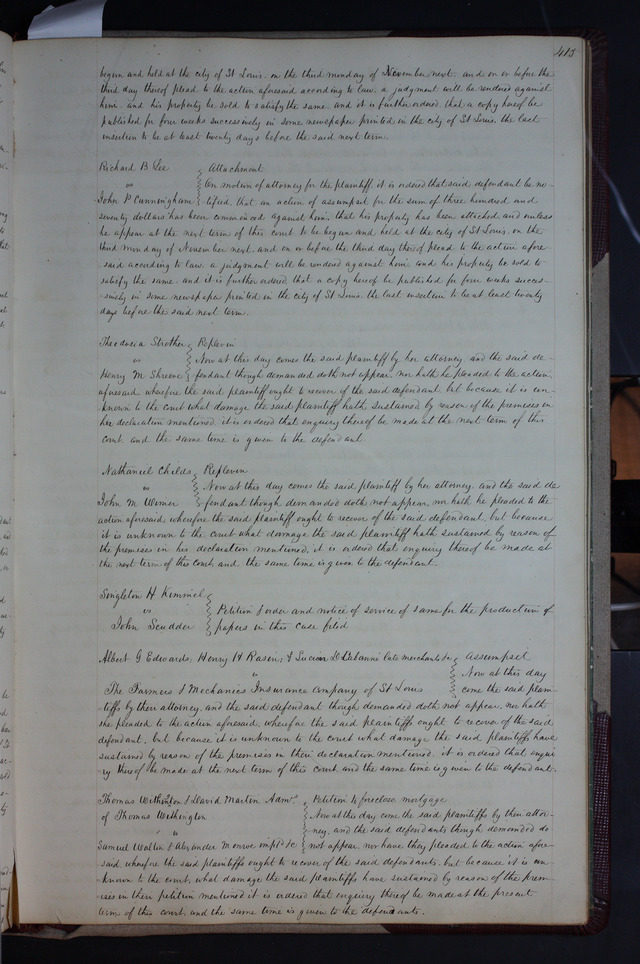 413
begun and held at the city of St Louis. on the third monday of November next. and on or before the
third day thereof plead to the action aforesaid according to law. a judgment will be rendered against
him. and his property be sold to satisfy the same. and it is further ordered, that a copy hereof be
published for four weeks successively in some newspaper printed in the city of St Louis. the last
insertion to be at least twenty days before the said next term.
Richard B Lee Attachment
vs On motion of attorney for the plaintiff. it is ordered that said defendant be no-
John P Cunningham tified, that an action of assumpsit for the sum of three hundred and
seventy dollars has been commenced against him, that his property has been attached, and unless
he appear at the next term of this court to be begun and held at the city of St Louis. on the
third monday of November next. and on or before the third day thereof plead to the action afore-
said according to law. a judgment will be rendered against him. and his property be sold to
satisfy the same. and it is further ordered, that a copy hereof be published for four weeks succes-
sively in some newspaper printed in the city of St Louis. the last insertion to be at least twenty
days before the said next term.
Theodosia Strother Replevin
vs Now at this day comes the said plaintiff by her attorney. and the said de-
Henry M Shreeve fendant though demanded doth not appear. nor hath he pleaded to the action
aforesaid. wherefore the said plaintiff ought to recover of the said defendant. but because it is un-
known to the court what damage the said plaintiff hath sustained by reason of the premises in
her declaration mentioned. it is ordered that enquiry thereof be made at the next term of this
court. and the same time is given to the defendant
Nathaniel Childs Replevin
vs Now at this day comes the said plaintiff by her attorney. and the said de
John M Wimer fendant though demanded doth not appear, nor hath he pleaded to the
action aforesaid. wherefore the said plaintiff ought to recover of the said defendant, but because
it is unknown to the court what damage the said plaintiff hath sustained by reason of
the premises in his declaration mentioned, it is ordered that enquiry thereof be made at
the next term of this court. and the same time is given to the defendant.
Singleton H Kimmel
vs Petition & order and notice of service of same for the production of
John Scudder papers in this case filed
Albert G Edwards, Henry H Rasin, & Lucien D Cabanne late merchants &c Assumpsit
vs Now at this day
The Farmers & Mechanics Insurance Company of St Louis come the said plain-
tiffs by their attorney. and the said defendant though demanded doth not appear. nor hath
she pleaded to the action aforesaid. wherefore the said plaintiffs ought to recover of the said
defendant. but because it is unknown to the court what damage the said plaintiffs have
sustained by reason of the premises in their declaration mentioned. it is ordered that enqui
ry thereof be made at the next term of this court. and the same time is given to the defendant.
Thomas Withington & David Martin Admrs Petition to foreclose mortgage
of Thomas Withington Now at this day come the said plaintiffs by their attor-
vs ney. and the said defendants though demanded do
Samuel Walton & Alexander Monroe impld &c not appear. nor have they pleaded to the action afore-
said. wherefore the said plaintiffs ought to recover of the said defendants. but because it is un-
known to the court, what damage the said plaintiffs have sustained by reason of the prem-
ises in their petition mentioned it is ordered that enquiry thereof be made at the present
term of this court. and the same time is given to the defendants.